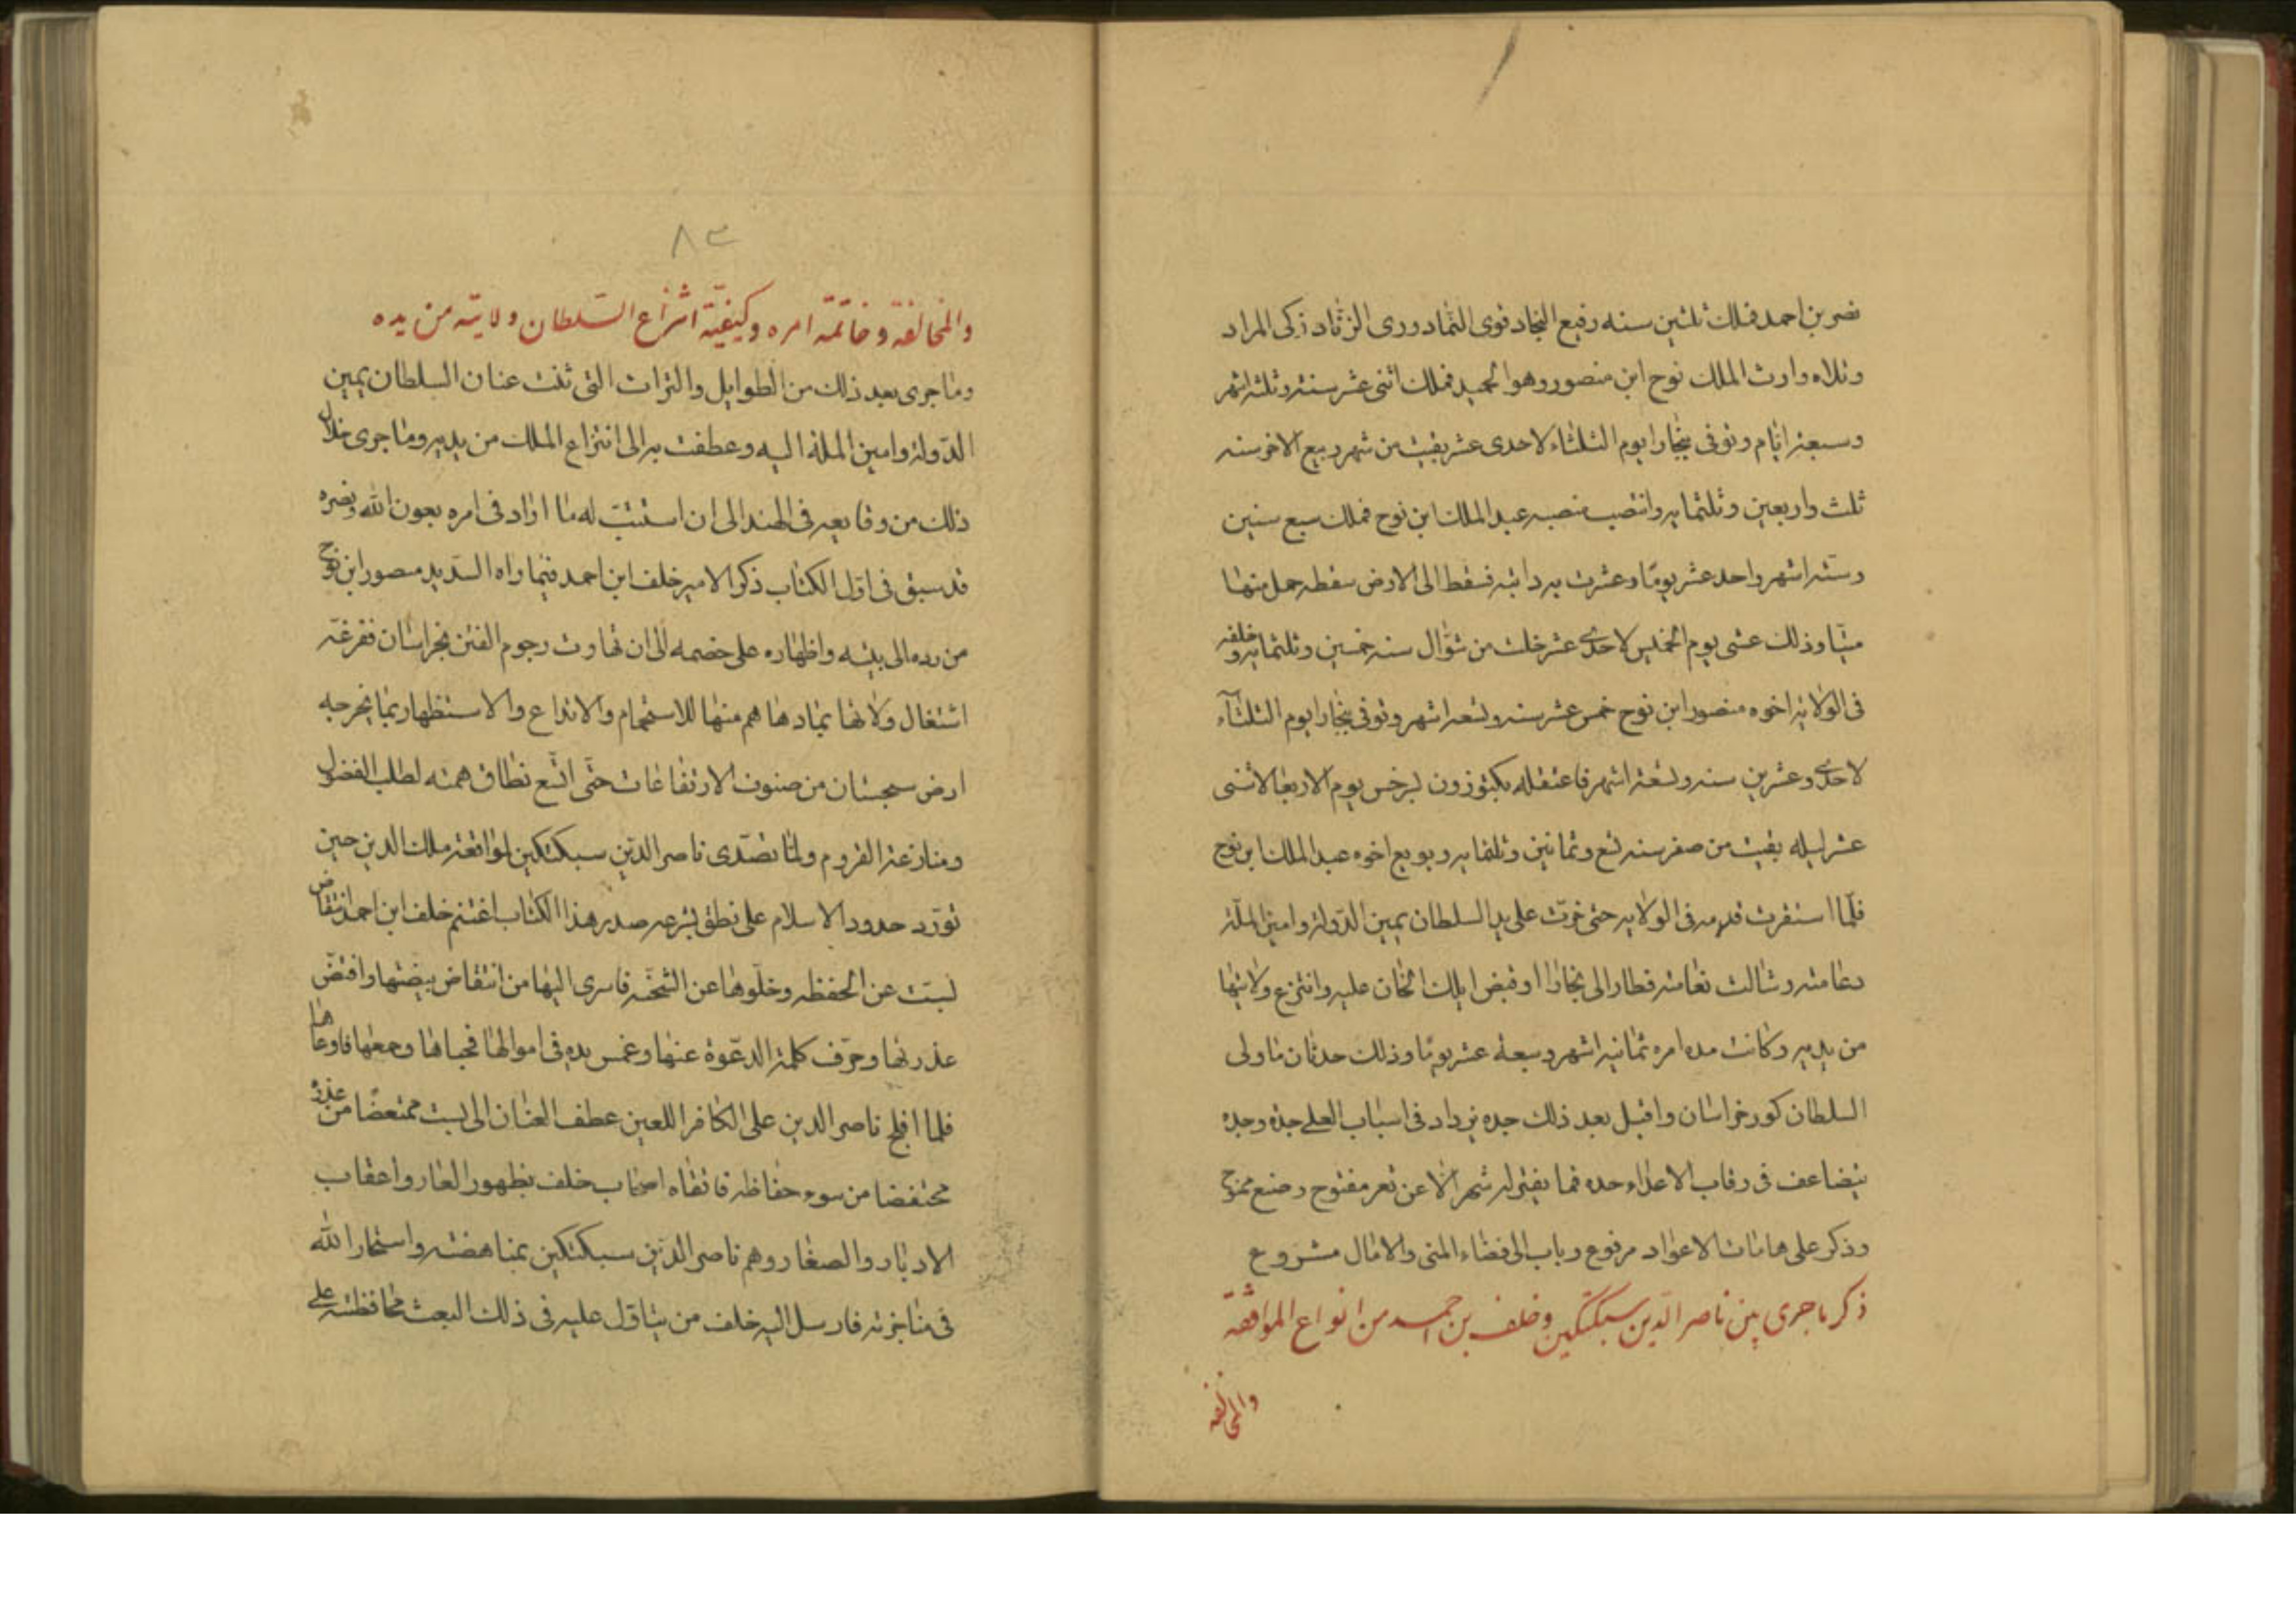 نصر بن احمد فملك ثلثين سنه رفيع النجاد قوى الثماد ورى الزناد زكى المراد
وتلاه وارث الملك نوح ابن منصور وهو الحميد فملك اثنى عشر سنة وثلثه اشهر
وسبعة ايام وتوفى ببخارا يوم الثلثاء لاحدى عشر بقيت من شهر ربيع الاخر سنه
ثلث واربعين وثلثمايه وانتصب منصبه عبد الملك ابن نوح فملك سبع سنين
وستة اشهر واحد عشر يومًا وعثرت به دابته فسقط الى الارض سقطه حمل منها
ميتًا وذلك عشى يوم الخميس لاحدى عشر خلت من شوال سنه خمسين وثلثمايه وخلفه
فى الولاية اخوه منصور ابن نوح خمس عشر سنه وتسعة اشهر وتوفى ببخارا يوم الثلثاء
لاحدى وعشرين سنه وتسعة اشهر فاعتقله بكتوزون بسرخس يوم الاربعا لاثنى
عشر ليله بقيت من صفر سنه تسع وثمانين وثلثمايه وبويع اخوه عبد الملك ابن نوح
فلمّا استقرت قدمه فى الولايه حتى خرّت على يد السلطان يمين الدولة وامين الملّة
دعامته وشالت نعامته فطار الى بخارا وقبض ايلك الخان عليه وانتزع ولايتها
من يديه وكانت مده امره ثمانية اشهر وسبعة عشر يومًا وذلك حدثان ما ولى
السلطان كور خراسان واقبل بعد ذلك جده يزداد فى اسباب العلى جدّه وجده
يتضاعف فى رقاب الاعداء حده فما يفتر له شهر الّا عن ثغر مفتوح وصنع ممنوح
وذكر على هامات الاعواد مرفوع وباب الى فضاء المنى والامال مشروع
ذكر ما جرى بين ناصر الدين سبكتكين وخلف بن احمد من انواع الموافقه
والمخالفه
٨٣
والمخالفة وخاتمة امره وكيفيّة انتزاع السّلطان ولايته من يده
وما جرى بعد ذلك من الطوايل والترات التى ثنت عنان السلطان يمين
الدولة وامين الملة اليه وعطفت به الى انتزاع الملك من يديه وما جرى خلال
ذلك من وقايعه فى الهند الى ان استتبّ له ما اراد فى امره بعون الله ونصره
قد سبق فى اول الكتاب ذكر الامير خلف ابن احمد فيما راه السديد منصور ابن نوح
من رده الى بيته واظهاره على خصمه الى ان تهاوت رجوم الفتن بخراسان ففرغه
اشتغال ولاتها بمادهاهم منها للاستجمام والاتداع والاستظهار بما يخرجه
ارض سجستان من صنوف الارتفاعات حتّى اتّسع نطاق همته لطلب الفضول
ومنازعة القروم ولمّا تصدّى ناصر الدين سبكتكين لمواقعة ملك الدين حين
تورّد حدود الاسلام على نطق بشرحه صدر هذا الكتاب اغتنم خلف ابن احمد انتقاض
بست عن الحفظه وخلّوها عن الشحنه فاسرى اليها من انتقاض بيضتها وافتضّ
عذرتها وحرّف كلمة الدعوة عنها وغمس يده فى اموالها فجباها وجمعها فاوعاها
فلما افلح ناصر الدين على الكافر اللعين عطف العنان الى بست ممتعضًا من غدره
محتفضا من سوء حفاظه فاتقاه اصحاب خلف بظهور العار واعقاب
الادبار والصغار وهم ناصر الدين سبكتكين بمناهضته واستخار الله
فى مناجزته فارسل اليه خلف من يتاوّل عليه فى ذلك البعث محافظته على